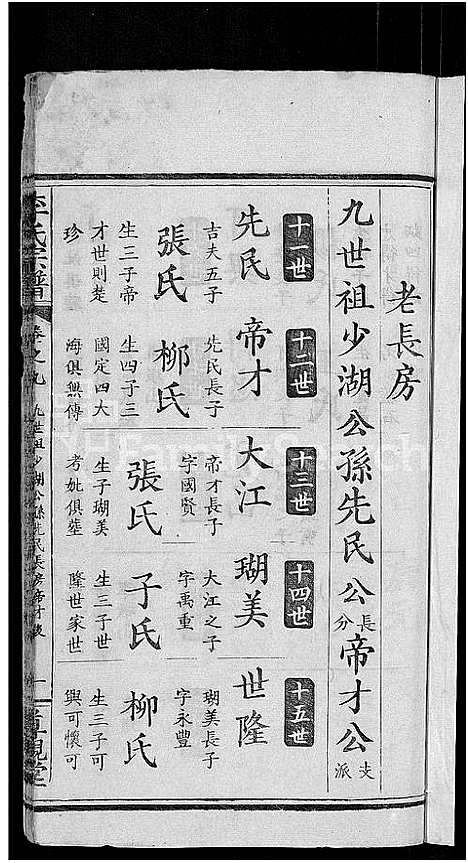 老長房
九世祖少湖公孫先民公長分帝才公支派
十一世
先民
吉夫五子
張氏
生三子帝
才世則楚
珍
十二世
帝才
先民長子
柳氏
生四子三
國定四大
海俱無傳
十三世
大江
帝才長子
字國賢
張氏
生子瑚美
考妣俱塟
十四世
瑚美
大江之子
字禹重
子氏
生三子世
隆世家世
十五世
世隆
瑚美長子
字永豐
柳氏
生三子可
興可懷可
李氏宗譜
卷之九
九世祖少湖公孫先民長房帝才支
一